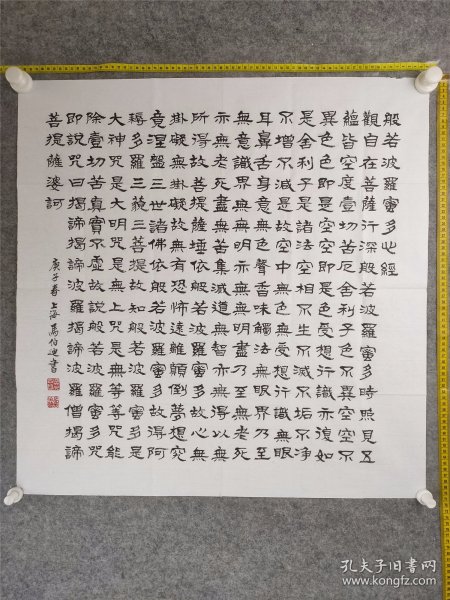 般若波羅蜜多心經
觀自在菩薩行深般若波羅蜜多時照見五
蘊皆空度壹切苦厄舍利子色不異空空不
異色色即是空空即是色受想行識亦復如
是舍利子是諸法空相不生不滅不垢不净
不增不減是故空中無色無受想行識無眼
耳鼻舌身意無色聲香味觸法無眼界乃至
無意識界無無明亦無無明盡乃至無老死
亦無老死盡無苦集滅道無智亦無得以無
所得故菩提薩埵依般若波羅蜜多故心無
掛礙無掛礙故無有恐怖遠離顛倒夢想究
竟涅盤三世諸佛依般若波羅蜜多故得阿
耨多羅三藐三菩提故知般若波羅蜜多是
大神咒是大明咒是無上咒是無等等咒能
除壹切苦真實不虛故說般若波羅蜜多咒
即說咒曰揭諦揭諦波羅揭諦波羅僧揭諦
菩提薩婆訶
庚子春上海馬伯迪書
孔夫子旧书网
www.kongfz.com